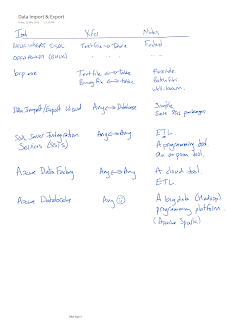 Data Import & Export
Tool Xfer Notes
BULK INSERT (SQL) Text file → Table
OPENROWSET (BULK)
bcp.exe Text file ↔ table
Binary file ↔ table
Data Import/Export Wizard Any ↔ Database Simple
Save SSIS packages
SQL Server Integration Any ↔ Any ETL.
Services (SSIS) A programming tool
An on-prem tool.
Azure Data Factory Any ↔ Any A cloud tool.
ETL.
Azure Databricks Any ☺ A big data (Hadoop)
programming platform.
(Apache Spark)